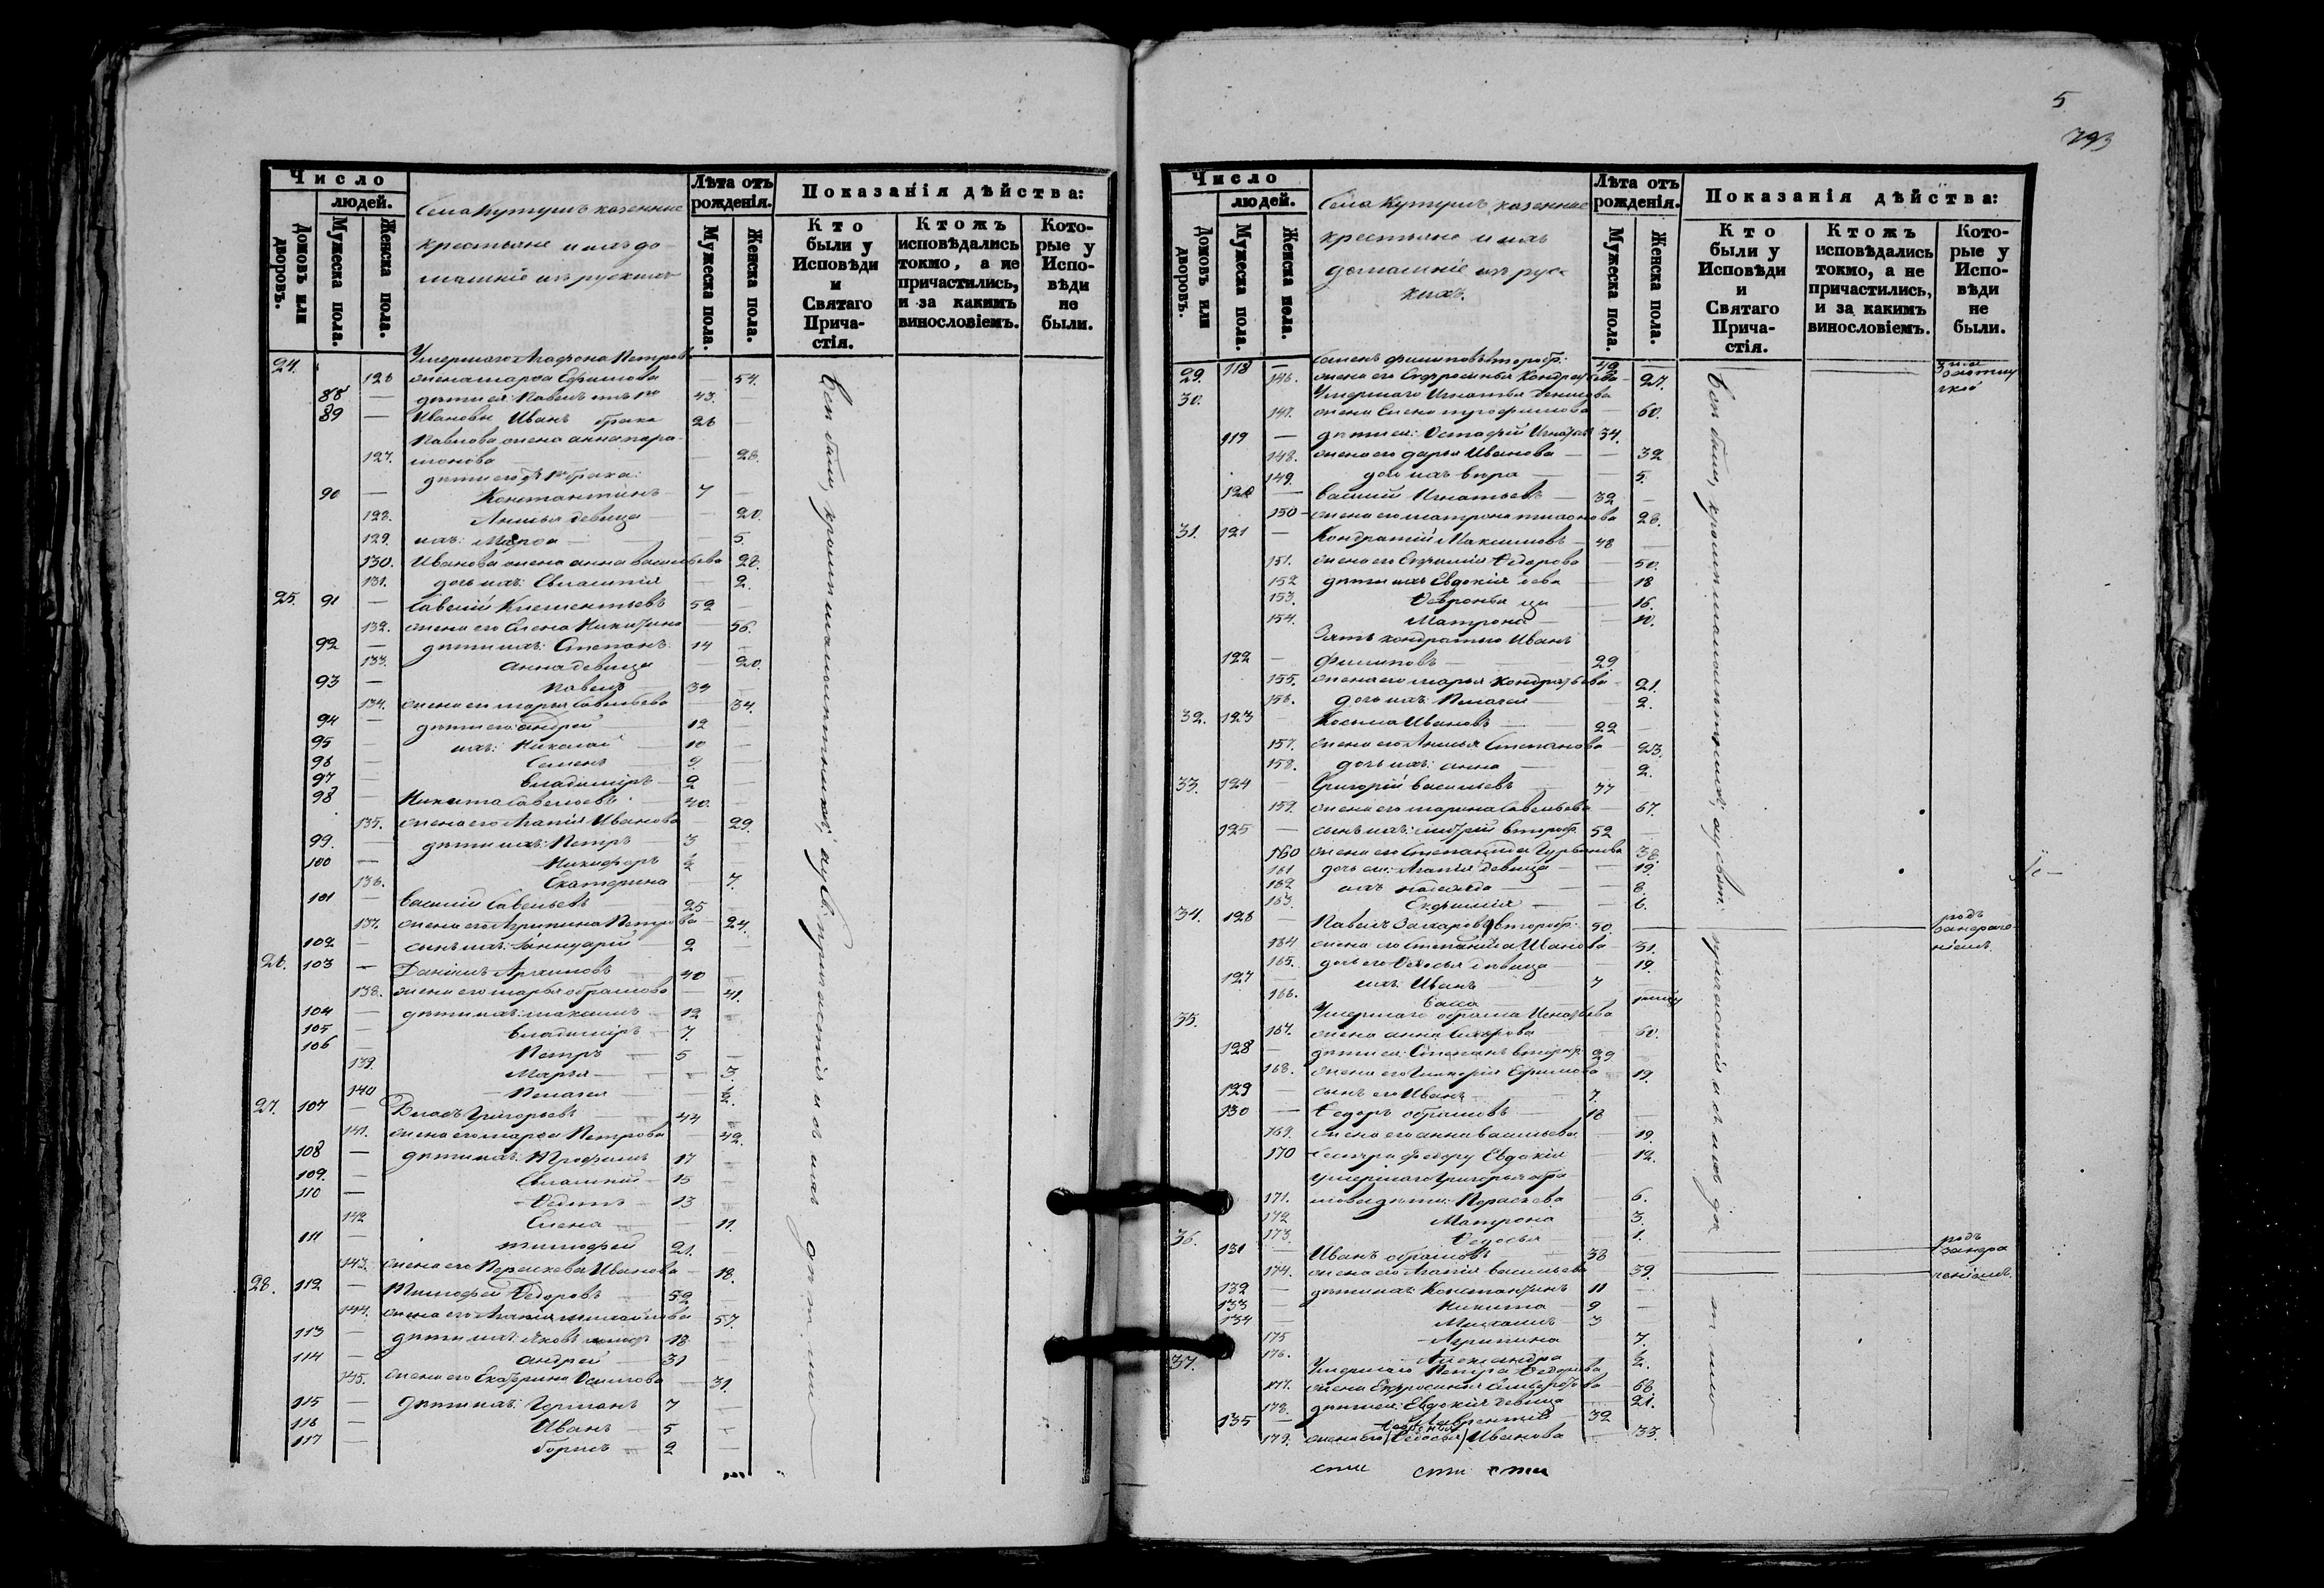 Число
людей.
Домовъ или дворовъ.
Мужеска пола.
Женска пола.
Села Кутушъ казенные
крестьяне и ихъ до-
машніе изъ русскихъ
Лѣта отъ рожденія.
Мужеска пола.
Женска пола.
Показанія дѣйства:
Кто были у Исповѣди и Святаго Прича-стія.
Ктожъ исповѣдались токмо, а не причастились, и за какимъ винословіемъ.
Кото-рые у Испо-вѣди не были.
24. Умершаго Агафона Петрова
126 жена марѳа Ефимова — 54.
88 — дѣти ея: Павелъ 43. —
89 — Ивановы Иванъ брака 26 —
Павлова жена анна пара-
127. монова — 28.
дѣти его 1го брака:
90 — Константинъ 7 —
128. Анисья девица — 20.
129. ихъ: Марѳа — 5
130. Иванова жена анна васильева 28.
131. дочь ихъ: Евлампія — 2.
25. 91 — Савелій Клементьевъ 59 —
132. жена его Елена Никитина — 56.
92 — дѣти ихъ: Степанъ 14 —
133. анна девица — 20.
93 — Павелъ 34 —
134. жена его марья Савельева — 34.
94 — дѣти его: андрей 12
95 — ихъ: Николай 10 —
96 — Семенъ 9.
97 — владиміръ 2
98 — Никита Савельевъ 40. —
135. жена его Агапія Иванова — 29.
99. — дѣти ихъ: Петръ 3 —
100 — Никифоръ ½
136. Екатерина — 7.
101 — василій Савельевъ 25 —
137. жена его Агрипина Петрова — 24.
102 — сынъ ихъ: Іаннуарій 2
26. 103 — Даніилъ Архиповъ 40 —
138. жена его марья абрамова — 41.
104 — дѣти ихъ: максимъ 12 —
105 — владиміръ 7.
106 — Петръ 5 —
139. Марья — 3.
140 — Пелагея — ½.
27. 107 — Власъ Григорьевъ 44 —
141. жена его марѳа Петрова — 42.
108 — дѣти ихъ: Трофимъ 17
109. — Евлампій 15 —
110 — Ѳедотъ 13
142 Елена — 11.
111 — тимофей 21. —
143. жена его Параскева Иванова — 18.
28. 112 — Тимофей Ѳедоровъ 59 —
144. жена его Агапія михайлова — 57.
113 — дѣти ихъ: Яковъ 18 —
114 — андрей 31 —
145. жена его Екатерина Осипова — 31.
115 — Дѣти ихъ: Германъ 7 —
116 — Иванъ 5 —
117 — борисъ 2 —
вси были, кромѣ малолѣтнихъ
5
793
Число
людей.
Домовъ или дворовъ.
Мужеска пола.
Женска пола.
Села Кутушъ казенные
крестьяне и ихъ
домашніе изъ русс-
кихъ.
Лѣта отъ рожденія.
Мужеска пола.
Женска пола.
Показанія дѣйства:
Кто были у Исповѣди и Святаго Прича-стія.
Ктожъ исповѣдались токмо, а не причастились, и за какимъ винословіемъ.
Кото-рые у Испо-вѣди не были.
29. 118 — Семенъ филиповъ второбр: 49. —
146. жена его Евфросинья Кондратьева — 27.
30. Умершаго Игнатья Денисова
147. жена Елена трофимова — 60.
119 — дѣти ея: Остафій Игнатьевъ 34.
148. жена его дарья Иванова — 32
149. дочь ихъ вѣра — 5.
120 — василій Игнатьевъ 32 —
150 — жена его матрона тихонова 26.
31. 121 — Кондратій Максимовъ 48 —
151. жена его Евфимія Ѳедорова — 50.
152 дѣти ихъ Евдокія деви 18
153. Ѳевронья ца 16.
154. Матрона — 10.
Зять кондратью Иванъ
122 — филиповъ 29.
155. жена его марья кондратьева — 21.
156. дочь ихъ: Пелагея — 2.
32. 123 — Косьма Ивановъ 22 —
157. жена его Анисья Степанова — 23.
158. дочь ихъ: анна — 2.
33. 124 — Григорій васильевъ 77 —
159. жена его марина Савельева — 67.
125 — сынъ ихъ: дмитрій второбр. 52 —
160 жена его Степанида Гурьянова 38.
161 дочь его: Агапія девица — 19.
162 ихъ надежда — 8.
163. Евфимія — 6.
34. 126 — Павелъ Захаровъ второбр: 50. —
164 жена его Степанида Иванова — 31.
165. дочь его Ѳедосья дѣвица — 19.
127 — ихъ: Иванъ 7
166. Васса
35. Умершаго абрама Игнатьева
167. жена анна Сидорова — 60.
128 — дѣти ея: Степанъ второбр 29 —
168. жена его Гликерія Ефимова 19.
129 — сынъ его Иванъ 7.
130 — Ѳедоръ абрамовъ 18 —
169. жена его анна васильева — 19.
170 Сестра федору Евдокія — 12.
умершаго Григорья абра-
171. мова дѣти: Параскева — 6.
172 Матрона 3.
173. Ѳедосья — 1.
36. 131 — Иванъ абрамовъ 38 —
174. жена его Агапія васильева — 39.
132 — дѣти ихъ: Константинъ 11 —
133 — Никита 9 —
134 — Михаилъ 3
175 Агрипина 7.
176. Александра — ½.
37. Умершаго Петра Ѳедорова
177. жена Евфросинья Селиверстова — 66.
178. дѣти ея: Евдокія девица — 21.
135 — Лаврентій 32
179. жена его (Ѳедосья) Иванова — 33.
вси были, кромѣ малолѣтнихъ